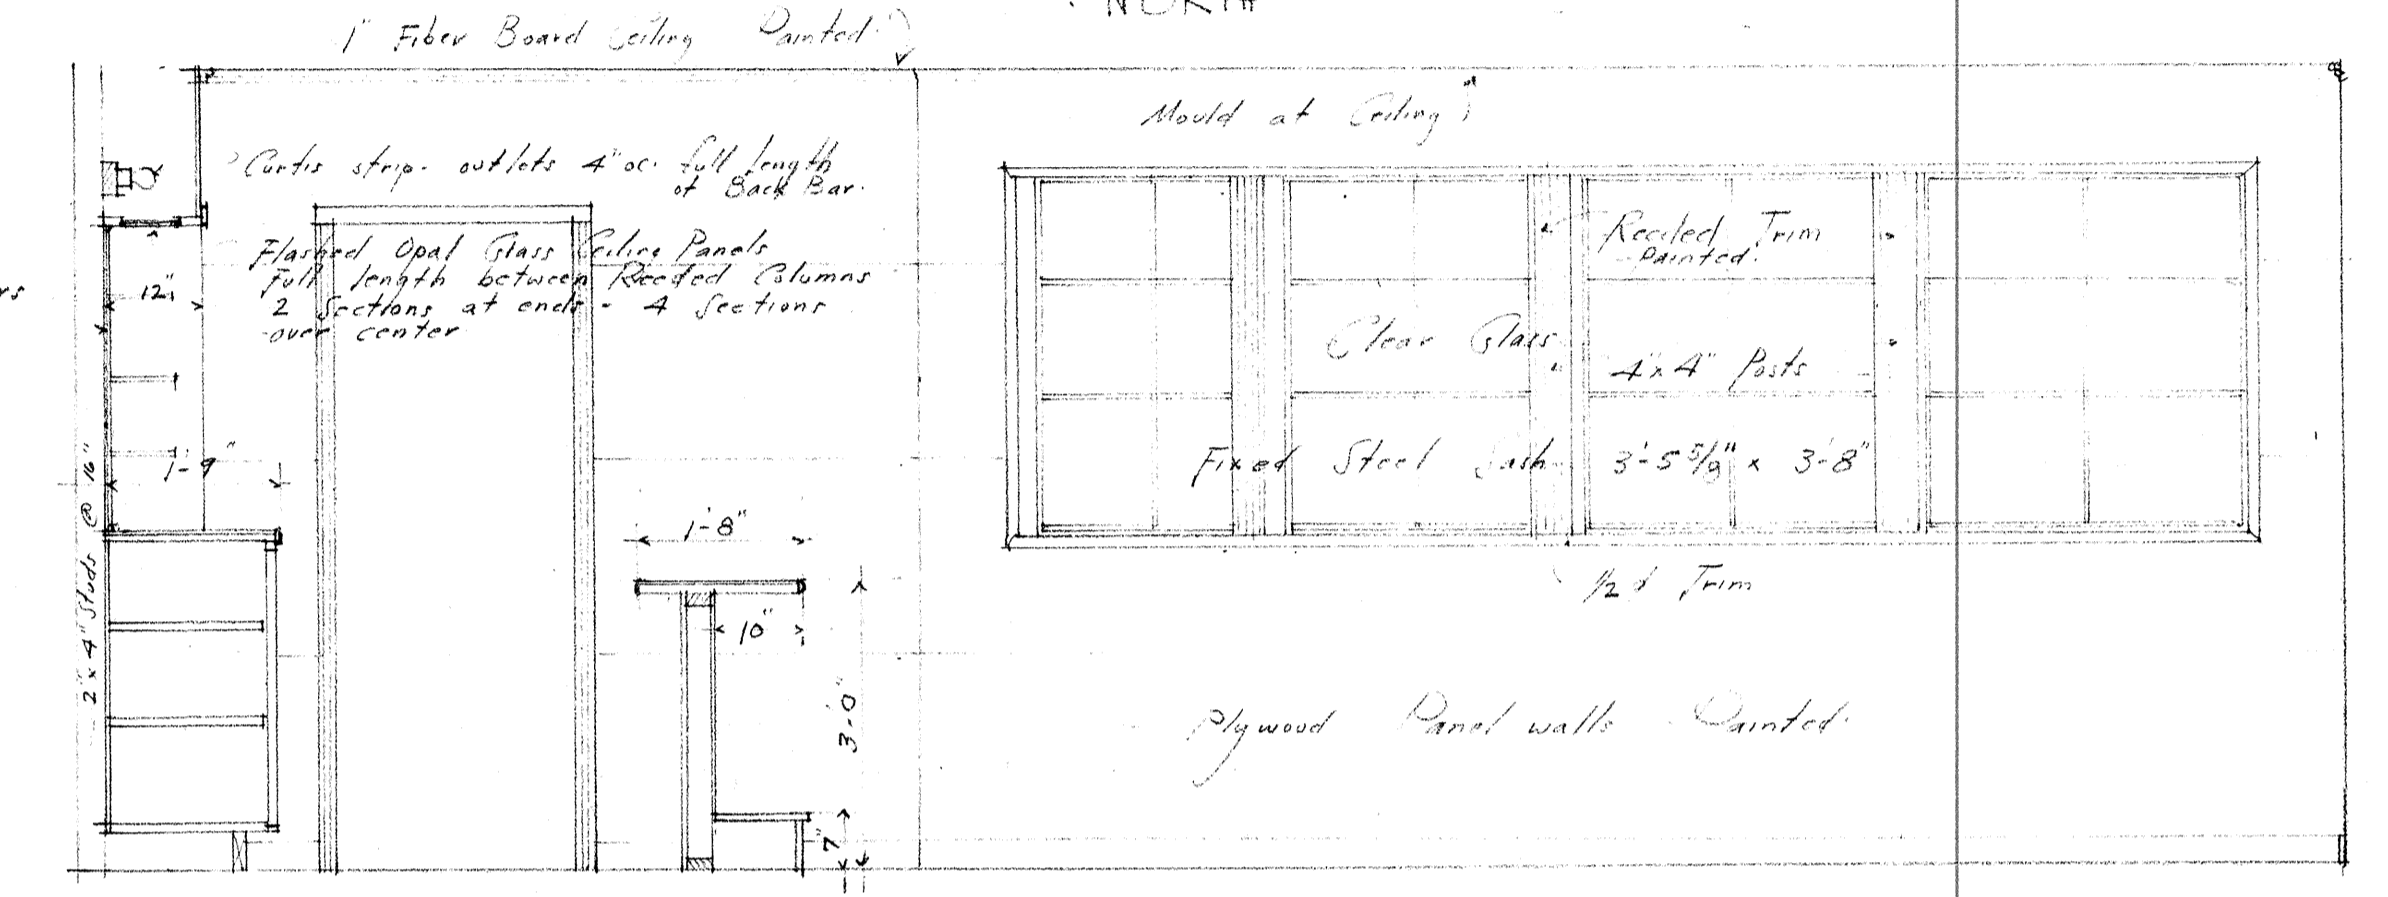 NORTH
1" Fiber Board Ceiling Painted.
Mould at Ceiling
Curtis strip. outlets 4" oc. full length
of Back Bar.
Flashed Opal Glass Ceiling Panels
Full length between Reeded Columns
2 Sections at ends - 4 Sections
over center
12"
1'-9"
2" x 4" Studs @ 16"
1'-8"
10"
3'-0"
7"
Reeded Trim
Painted.
Clear Glass
4"x 4" Posts
Fixed Steel Sash 3'-5 5/8" x 3'-8"
Trim
Plywood Panel walls Painted.